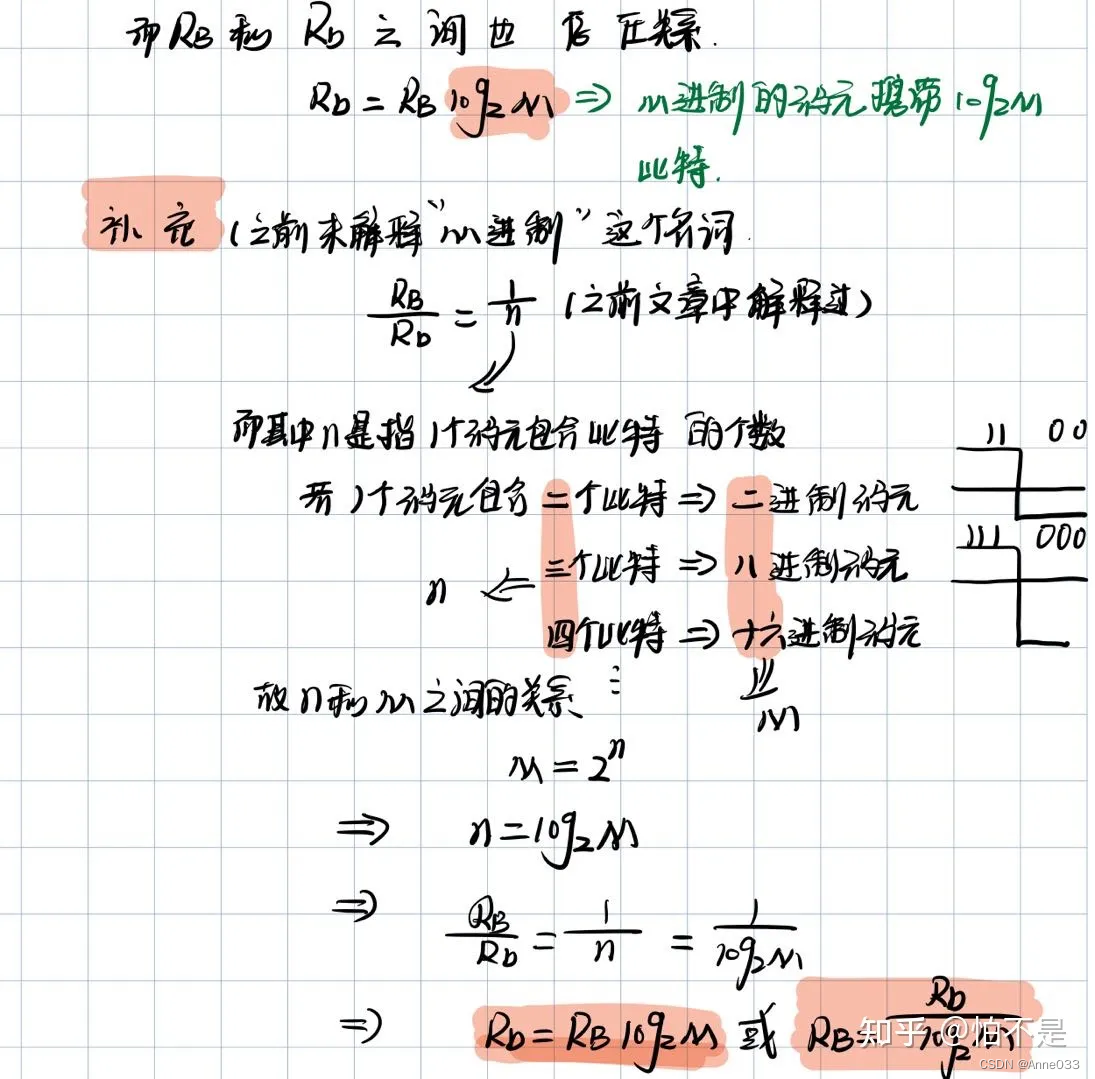 而RB和 Rb 之间也 存在关系.
Rb = RB log₂M ⇒ M进制的码元携带 log₂M
比特.
补充 (之前未解释“M进制”这个名词.
RB/Rb = 1/n (之前文章中解释过)
而其中n是指1个码元包含比特的个数
11 00
若1个码元包含二个比特 ⇒ 二进制码元
111 000
n ⇐ 三个比特 ⇒ 八进制码元
四个比特 ⇒ 十六进制码元
故n和M之间的关系 ⋮ M
M = 2ⁿ
⇒ n = log₂M
⇒ RB/Rb = 1/n = 1/log₂M
⇒ Rb = RB log₂M 或 RB = Rb/log₂M
知乎 @怕不是
CSDN @Anne033